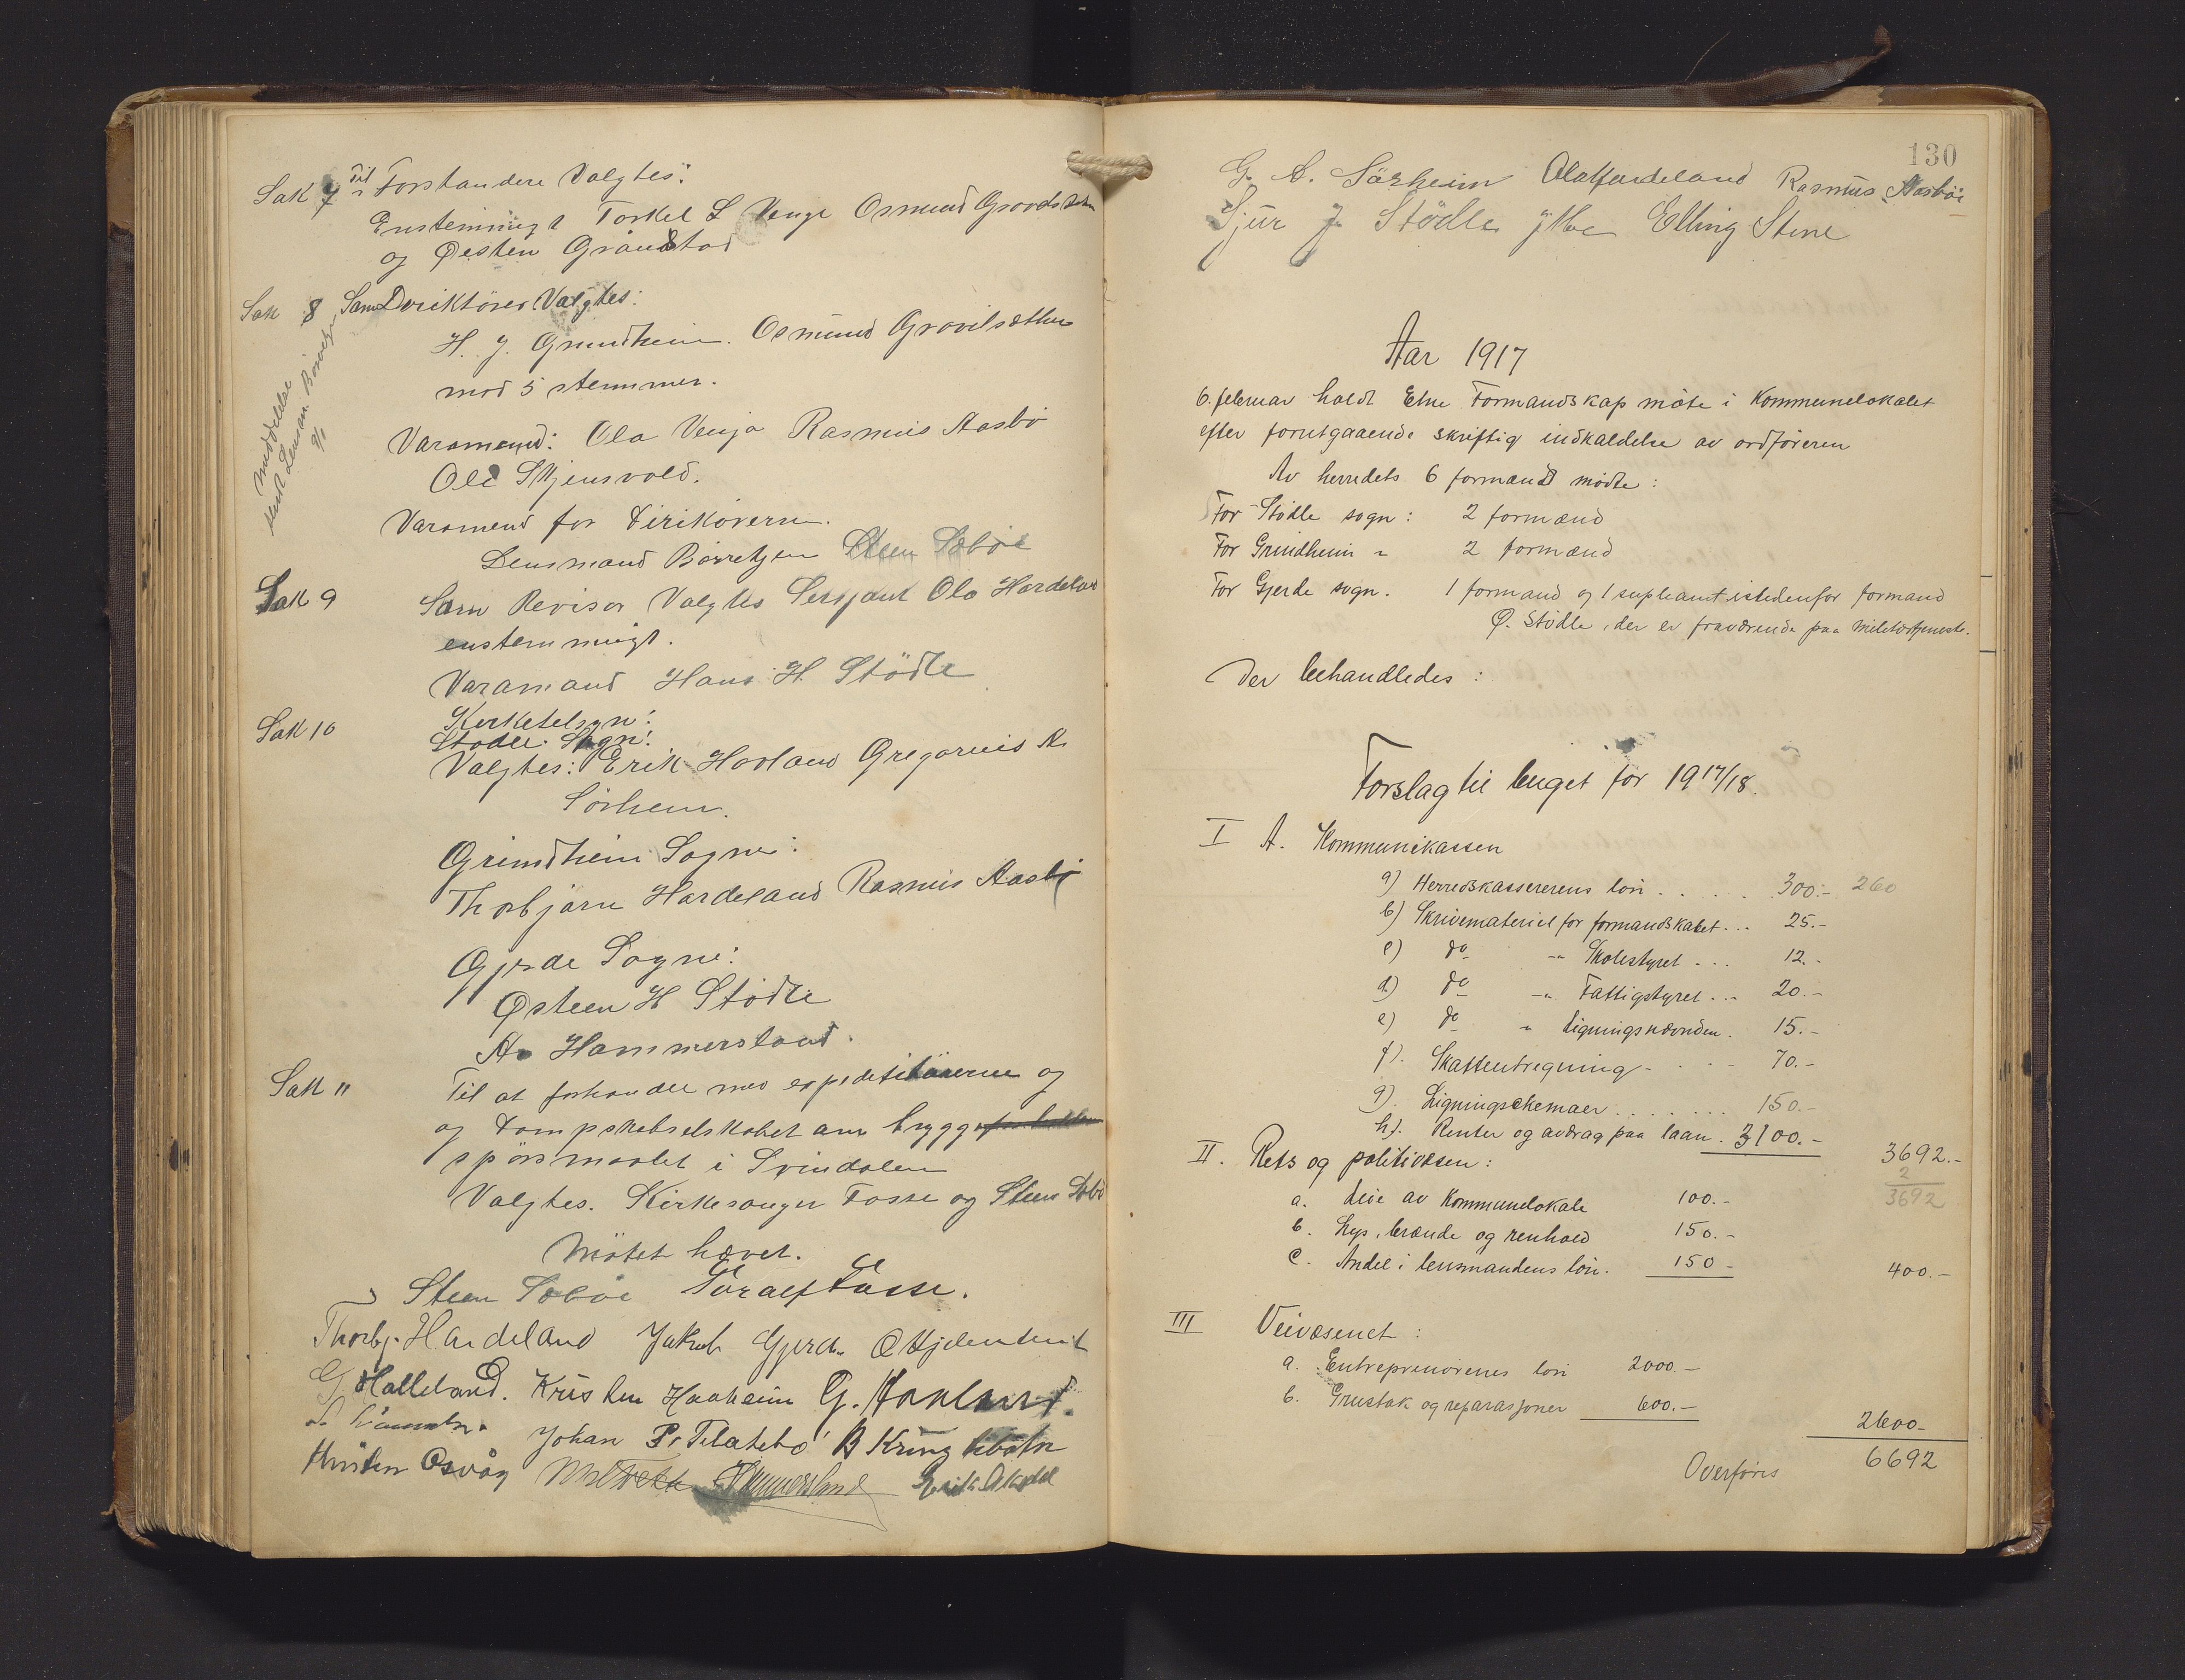 Sak 7 Til Forstandere Valgtes:
Enstemmigt Torkel L Venge Osmund
og Øesten Grånstad
Sak 8 Som Deriktörer Valgtes:
H. J. Grindheim. Osmund Grovilsæther
mod 5 stemmer.
Meddelelse
sendt Lensm. Børretzen
9/1
Varamend: Ola Venja Rasmus Aasbö
Ole Skjensvold.
Varamend for Dirikörern.
Lensmand Börretzen Steen Sæböe
Sak 9 Som Revisor Valgtes Sersjant Ola Hardeland
enstemmigt.
Varamand Hans H. Stödle
Sak 10 Kirketilsyn:
Stødle Sogn:
Valgtes: Erik Hovland Gregorius A.
Sörheim.
Grindheim Sogne:
Thorbjörn Hardeland Rasmus Aasbö
Gjerde Sogne:
Østeen H Stødle
A. Hammersland.
Sak 11 Til at forhandle med expeditörerne og
og Dampskebselskabet om brygge
spörsmaalet i Svindalen
Valgtes. Kirkesanger Fosse og Steen Sæbö
Mötet hævet.
Steen Sæböe Toralf Fosse.
Thorbj. Hardeland Jakob Gjerde
G Halleland. Kristen Haaheim G.
Johan P. B Kringlebotn
Osvåg Erik
130
G. A. Sörheim Ola Hardeland Rasmus Aasböe
Sjur J Stödle Elling Stene
Aar 1917
6. februar holdt Etne Formandskap möte i Kommunelokalet
efter forutgaaende skriftig indkaldelse av ordföreren
Av herredets 6 formænd mödte:
For Stödle sogn: 2 formænd
For Grindheim " 2 formænd
For Gjerde sogn. 1 formand og 1 supleant istedenfor formand
Ø. Stödle, der er fraværende paa militærtjeneste.
Der behandledes:
Forslag til buget for 1917/18.
I A. Kommunekassen
a) Herredskassererens lön . . . . 300.- 260
b) Skrivemateriel for formandskabet . . . 25.-
c) do -"- Skolestyret . . . 12.-
d) do -"- Fattigstyret . . . 20.-
e) do " Ligningsnævnden . 15.-
f). Skatteutregning . . . . 70.-
g). Ligningschemaer . . . . . . . 150.-
h). Renter og avdrag paa laan . 3100.- 3692.-
2
3692
II. Rets og politivæsen:
a. Leie av Kommunelokale 100.-
b. Lys, brænde og renhold 150.-
c. Andel i lensmandens lön. 150- 400.-
III Veivæsenet:
a. Entreprenörenes lön 2000.-
b. Grustak og reparasjoner 600.- 2600-
Overføres 6692